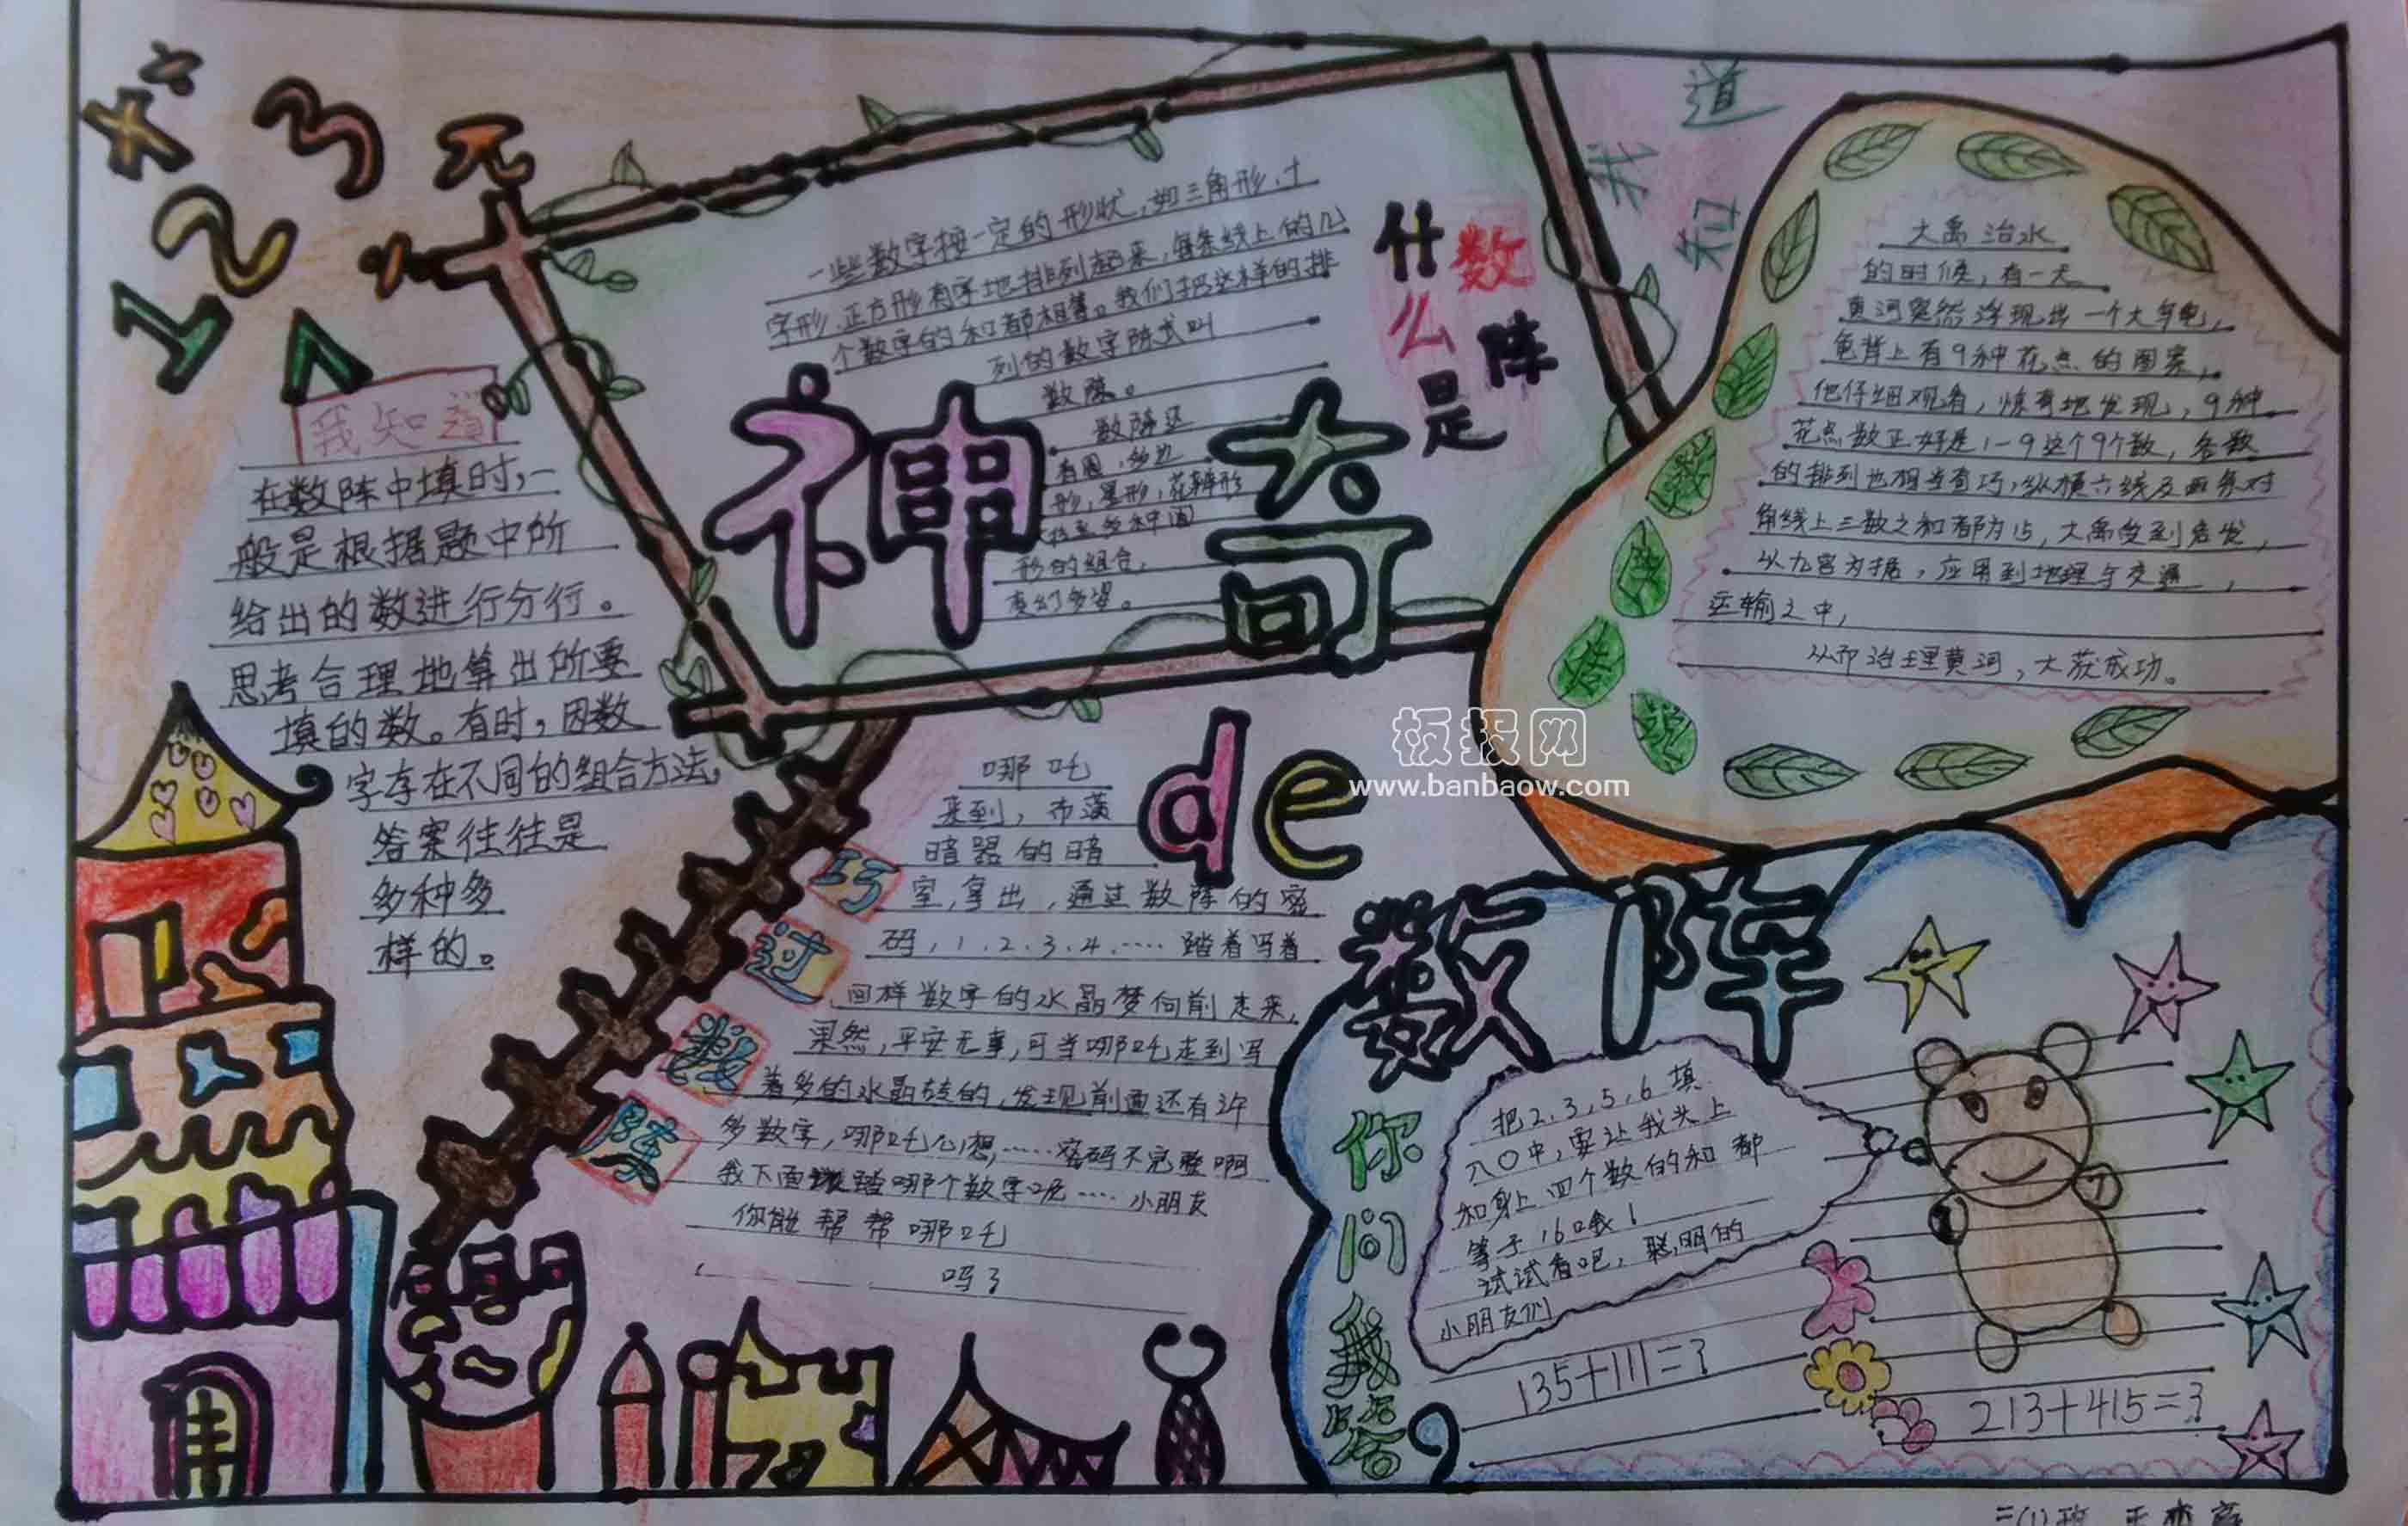 × ÷
1 2 3 元
我知道
在数阵中填时,一
般是根据题中所
给出的数进行分行。
思考合理地算出所要
填的数。有时,因数
字存在不同的组合方法,
答案往往是
多种多
样的。
什么是
数阵
一些数字按一定的形状,如三角形、十
字形、正方形有序地排列起来,每条线上的几
个数字的和都相等。我们把这样的排
列的数字阵式叫
数阵。
数阵还
有圆,多边
形,星形,花瓣形
形的组合,
变幻多姿。
神奇
de
数阵
我知道
大禹治水
的时候,有一天
黄河突然浮现出一个大乌龟,
龟背上有9种花点的图案,
他仔细观看,惊奇地发现,9种
花点数正好是1-9这个9个数,各数
的排列也相当奇巧,纵横六线及两条对
角线上三数之和都为15,大禹受到启发,
以九宫为据,应用到地理与交通,
运输之中,
从而治理黄河,大获成功。
板报网
www.banbaow.com
巧过数阵
哪吒
来到,布满
暗器的暗
室,拿出,通过数阵的密
码,1、2、3、4、……踏着写着
同样数字的水晶梦向前走来,
果然,平安无事,可当哪吒走到写
着多的水晶砖的,发现前面还有许
多数字,哪吒心想,……密码不完整啊
我下面踏哪个数字呢……小朋友
你能帮帮哪吒
吗?
你问我答
把2、3、5、6填
入〇中,要让我头上
和身上四个数的和都
等于16哦!
试试看吧,聪明的
小朋友们
7
135+111=?
213+415=?
三(1)班